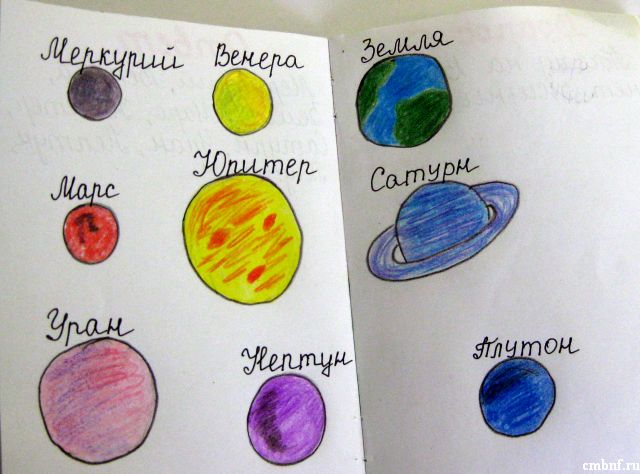 Меркурий
Венера
Земля
Марс
Юпитер
Сатурн
Уран
Нептун
Плутон
cmbnf.ru